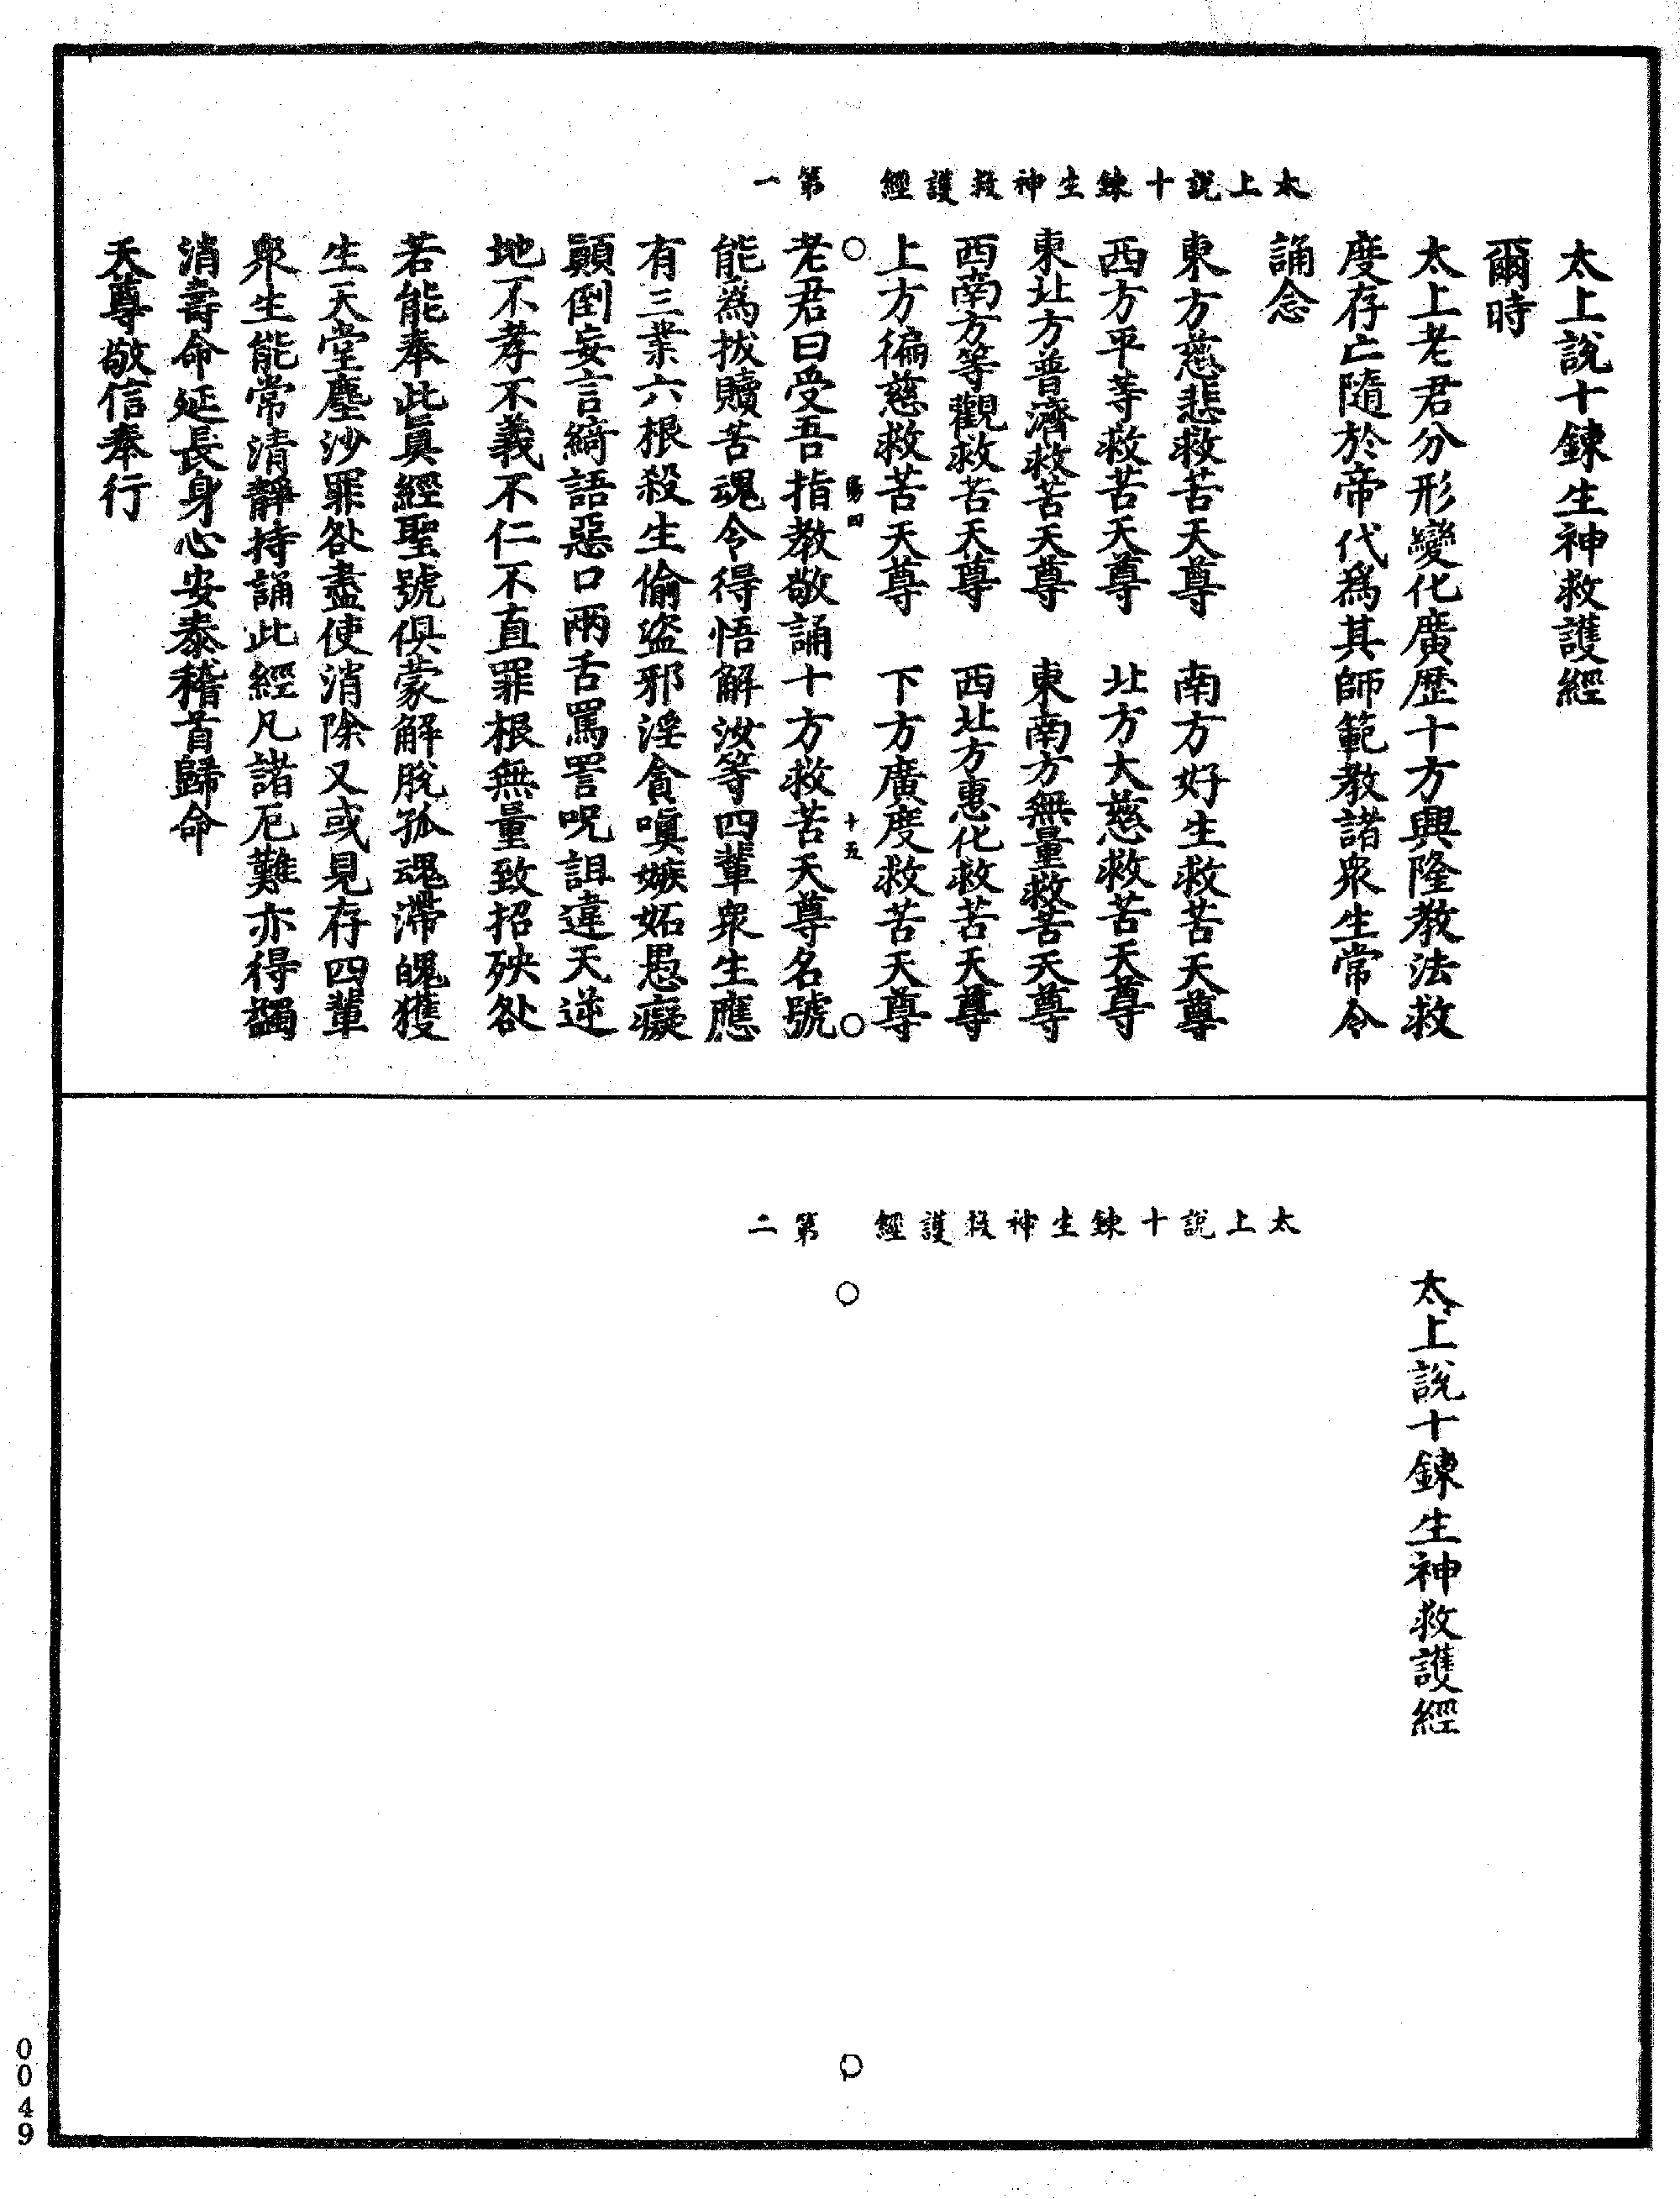 太上說十鍊生神救護經　第一
太上說十鍊生神救護經
爾時
太上老君分形變化廣歷十方興隆教法救
度存亡隨於帝代為其師範教諸衆生常令
誦念
東方慈悲救苦天尊　南方好生救苦天尊
西方平等救苦天尊　北方大慈救苦天尊
東北方普濟救苦天尊　東南方無量救苦天尊
西南方等觀救苦天尊　西北方惠化救苦天尊
上方徧慈救苦天尊　下方廣度救苦天尊
傷四　十五
老君曰受吾指教敬誦十方救苦天尊名號
能為拔贖苦魂令得悟解汝等四輩衆生應
有三業六根殺生偷盜邪淫貪嗔嫉妬愚癡
顛倒妄言綺語惡口兩舌罵詈呪詛違天逆
地不孝不義不仁不直罪根無量致招殃咎
若能奉此真經聖號俱蒙解脫孤魂滯魄獲
生天堂塵沙罪咎盡使消除又或見存四輩
衆生能常清靜持誦此經凡諸厄難亦得蠲
消壽命延長身心安泰稽首歸命
天尊敬信奉行
太上說十鍊生神救護經　第二
太上說十鍊生神救護經
0049